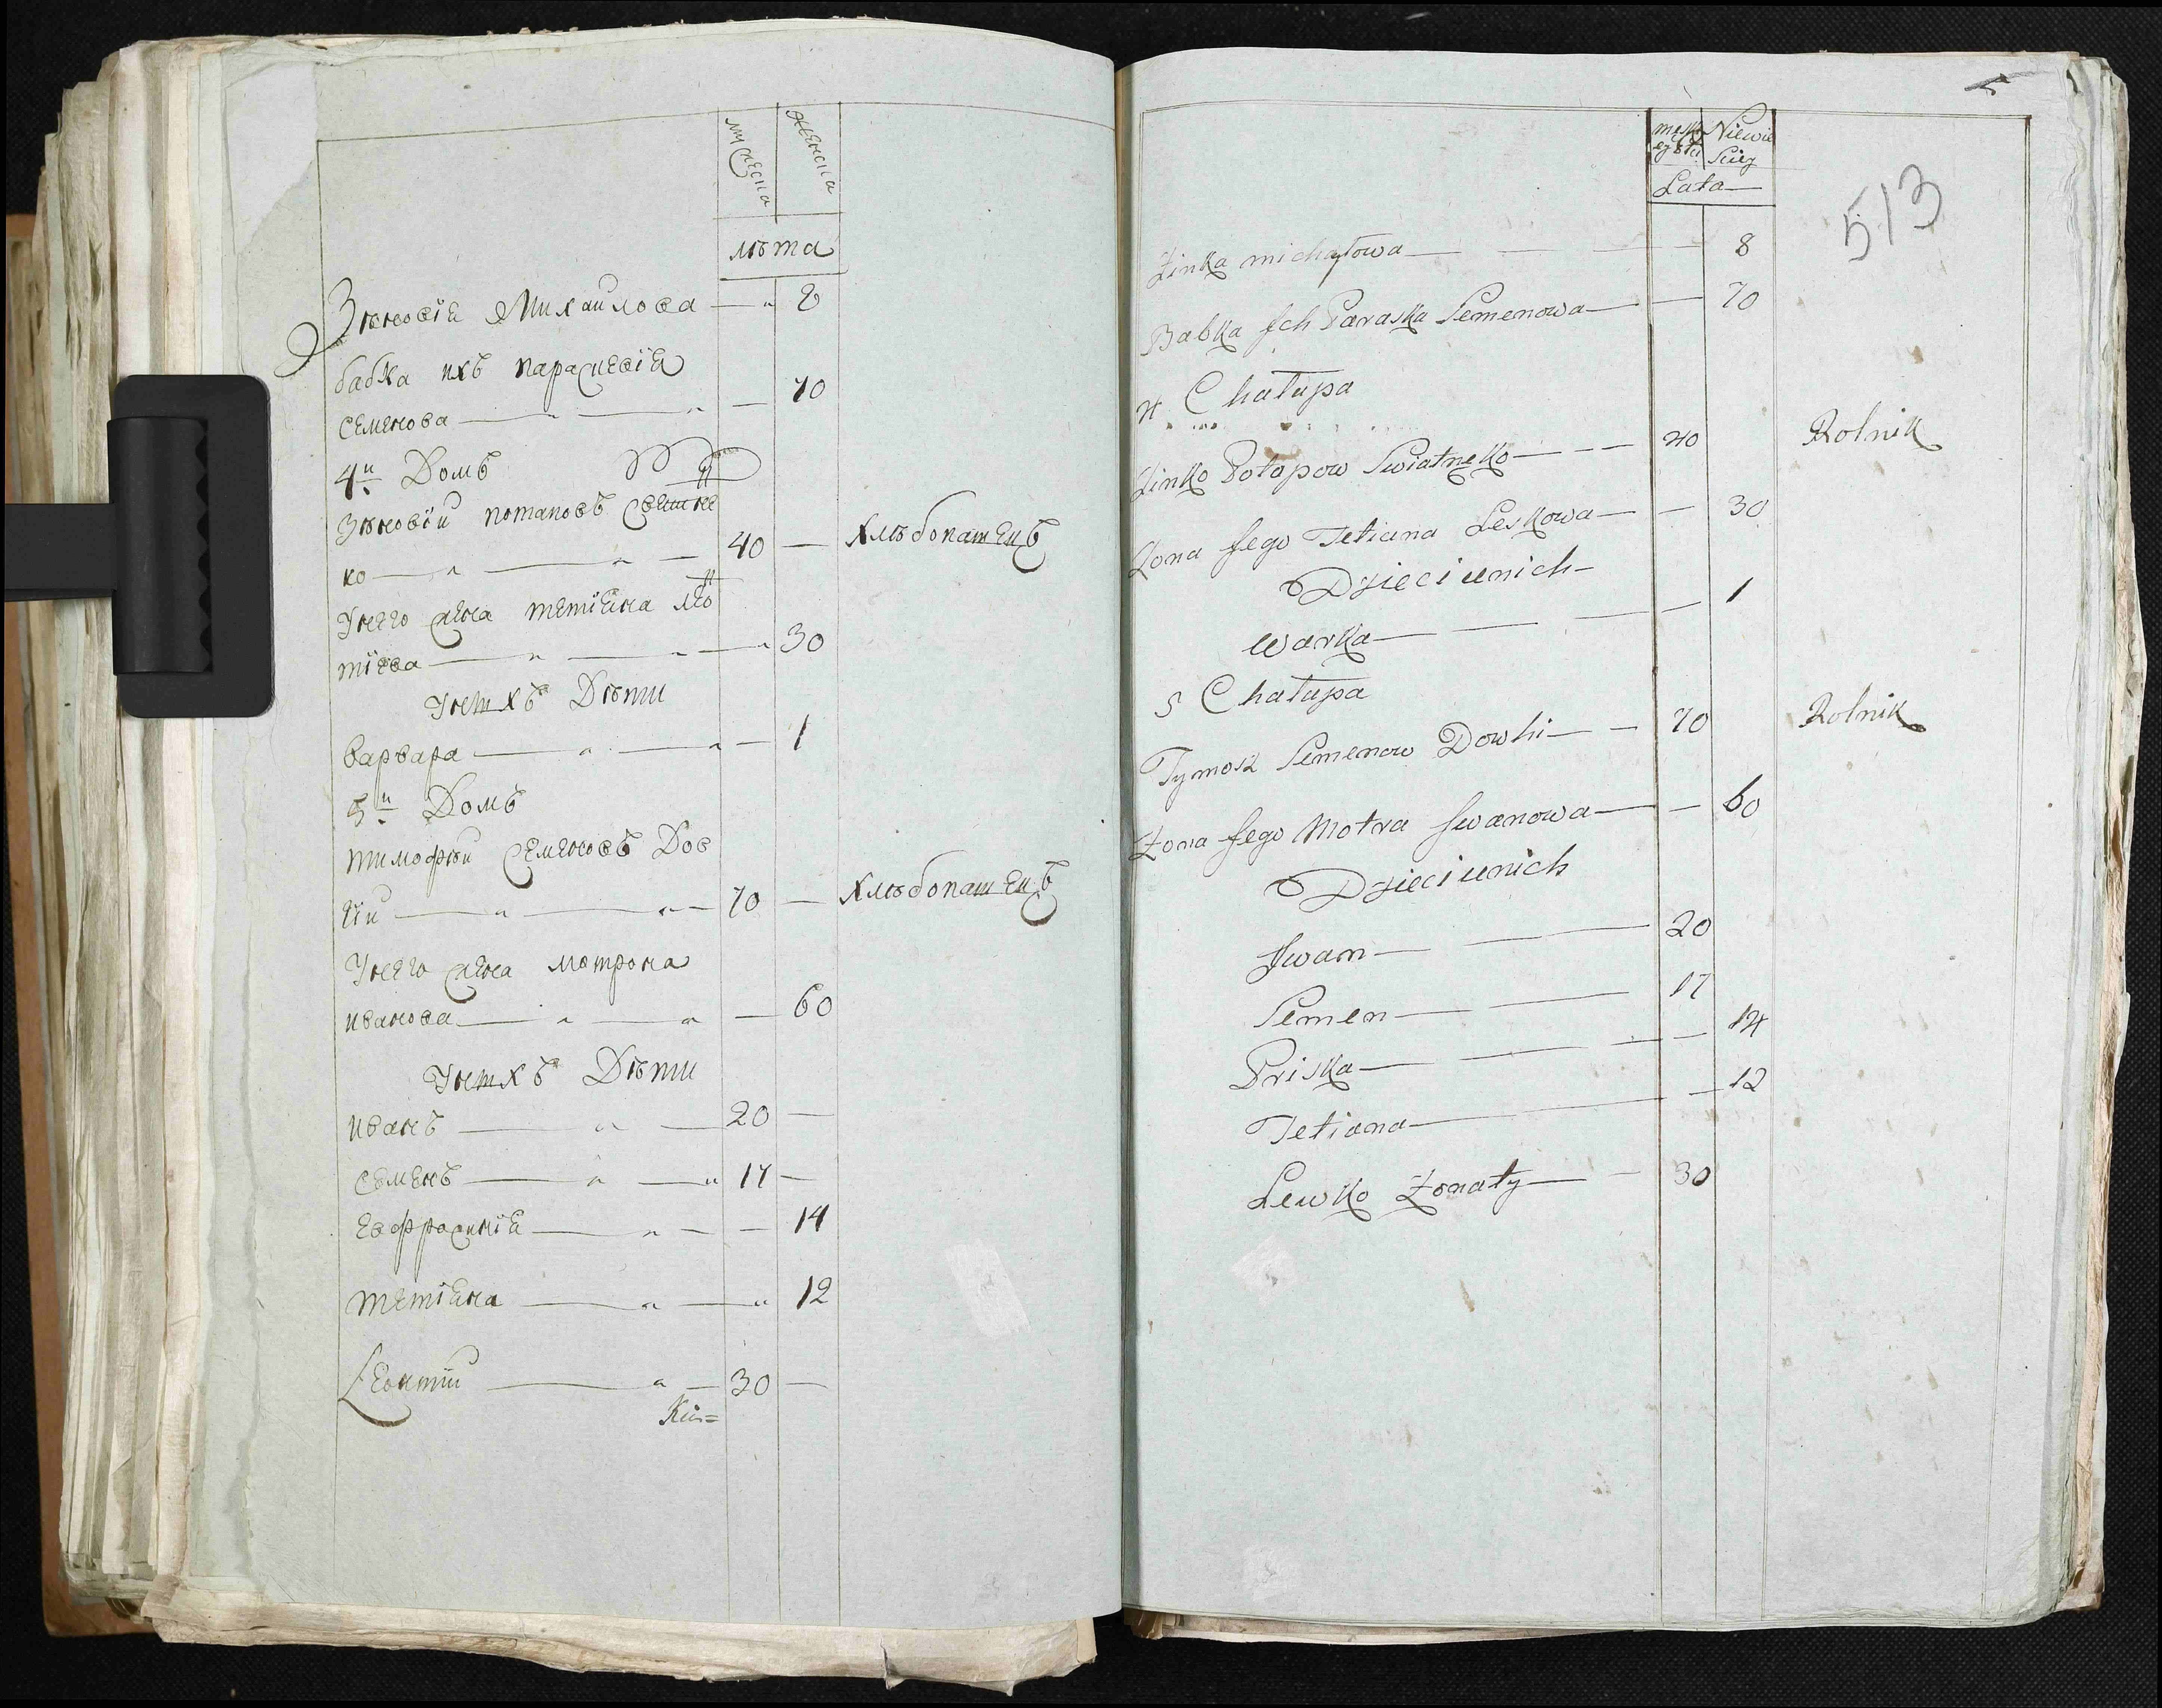 мужеска женска
лѣта
Зѣновія Михаилова — 8
бабка ихъ параскевія
семенова — 70
4й Домъ
Зѣновіи потаповъ Свитне
ко — 40 — Хлѣбопашецъ
Унего жена тетіана лео
тіева — 30
Унихъ Дѣти
варвара — 1
5й Домъ
тимофѣи Семеновъ Дов
гіи — 70 — Хлѣбопашецъ
Унего жена мотрона
иванова — 60
Унихъ Дѣти
иванъ — 20 —
семенъ — 17 —
евфросинія — 14
тетіана — 12
Леонтіи — 30 —
513
męsk Niewie
ey płci sciey
Lata
Zinka michayłowa — 8
Babka Jch Paraska Semenowa — 70
4 Chałupa
Zinko Potapow Swiatneko — 40 Rolnik
Żona Jego Tetiana Leskowa — 30
Dzieci unich
warka — 1
5 Chałupa
Tymosz Semenow Dowhi — 70 Rolnik
Żona Jego Motra Jwanowa — 60
Dzieci unich
Jwan — 20
Semen — 17
Priska — 14
Tetiana — 12
Lewko Żonaty — 30